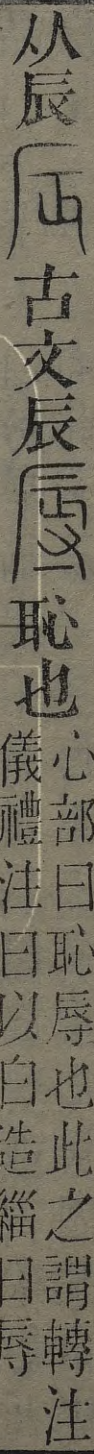 从辰𠨷古文辰辱恥也
心部曰恥辱也此之謂轉注
儀禮注曰以白造緇曰辱